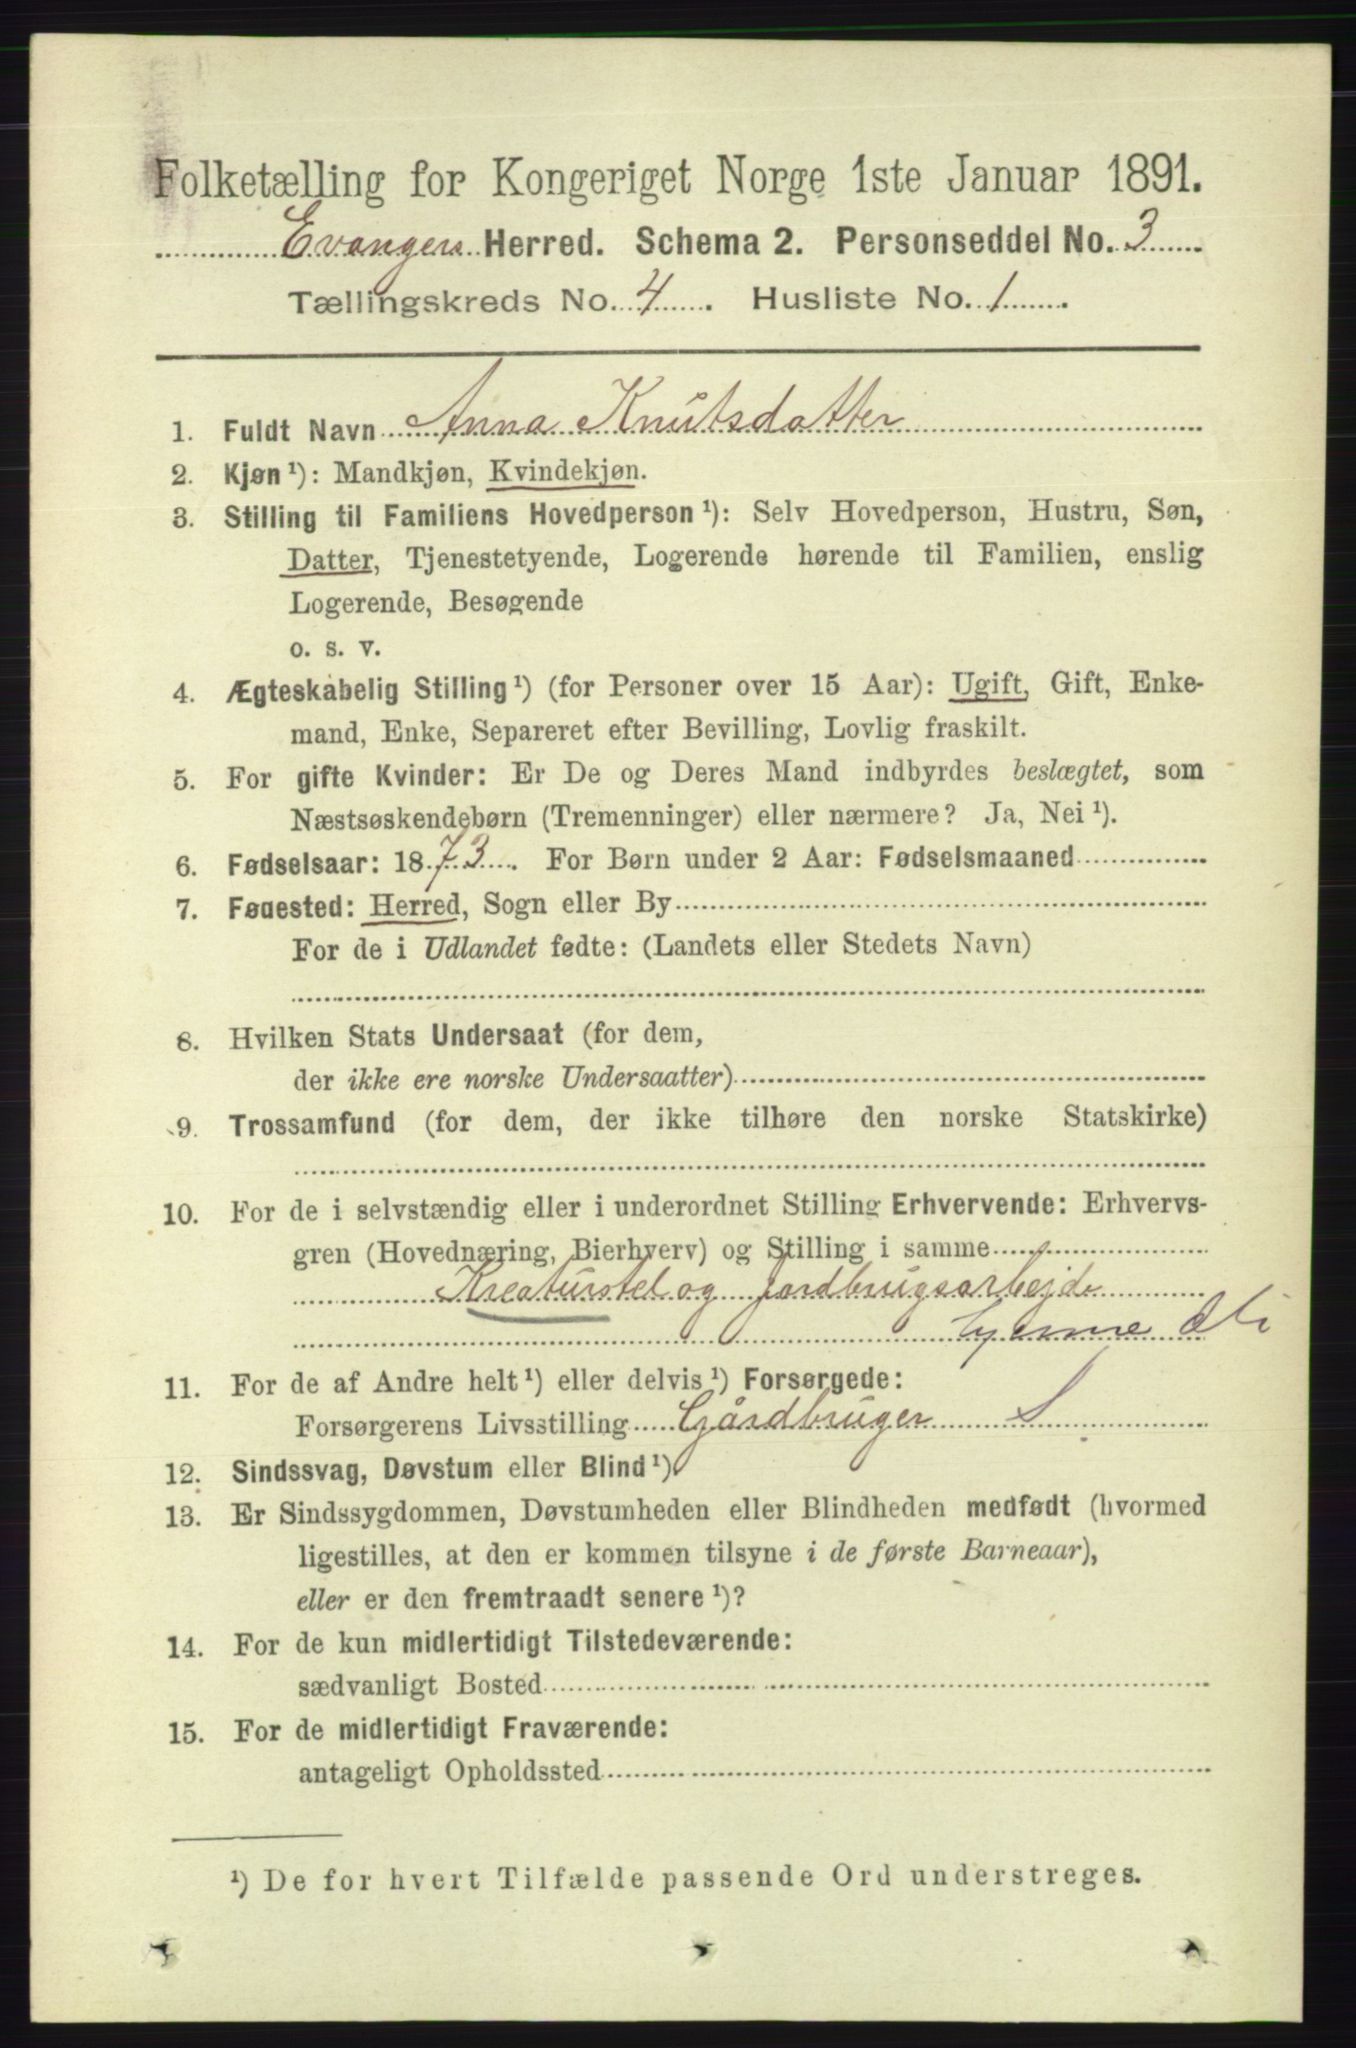 Folketælling for Kongeriget Norge 1ste Januar 1891.
Evangers Herred. Schema 2. Personseddel No. 3
Tællingskreds No. 4. Husliste No. 1.
1. Fuldt Navn Anna Knutsdatter
2. Kjøn ¹): Mandkjøn, Kvindekjøn.
3. Stilling til Familiens Hovedperson ¹): Selv Hovedperson, Hustru, Søn,
Datter, Tjenestetyende, Logerende hørende til Familien, enslig
Logerende, Besøgende
o. s. v.
4. Ægteskabelig Stilling ¹) (for Personer over 15 Aar): Ugift, Gift, Enke-
mand, Enke, Separeret efter Bevilling, Lovlig fraskilt.
5. For gifte Kvinder: Er De og Deres Mand indbyrdes beslægtet, som
Næstsøskendebørn (Tremenninger) eller nærmere? Ja, Nei ¹).
6. Fødselsaar: 1873. For Børn under 2 Aar: Fødselsmaaned
7. Føuested: Herred, Sogn eller By
For de i Udlandet fødte: (Landets eller Stedets Navn)
8. Hvilken Stats Undersaat (for dem,
der ikke ere norske Undersaatter)
9. Trossamfund (for dem, der ikke tilhøre den norske Statskirke)
10. For de i selvstændig eller i underordnet Stilling Erhvervende: Erhvervs-
gren (Hovednæring, Bierhverv) og Stilling i samme
Kreaturstel og Jordbrugsarbejde
hjemme
11. For de af Andre helt ¹) eller delvis ¹) Forsørgede:
Forsørgerens Livsstilling Gårdbruger S
12. Sindssvag, Døvstum eller Blind ¹).
13. Er Sindssygdommen, Døvstumheden eller Blindheden medfødt (hvormed
ligestilles, at den er kommen tilsyne i de første Barneaar),
eller er den fremtraadt senere ¹)?
14. For de kun midlertidigt Tilstedeværende:
sædvanligt Bosted
15. For de midlertidigt Fraværende:
antageligt Opholdssted
¹) De for hvert Tilfælde passende Ord understreges.